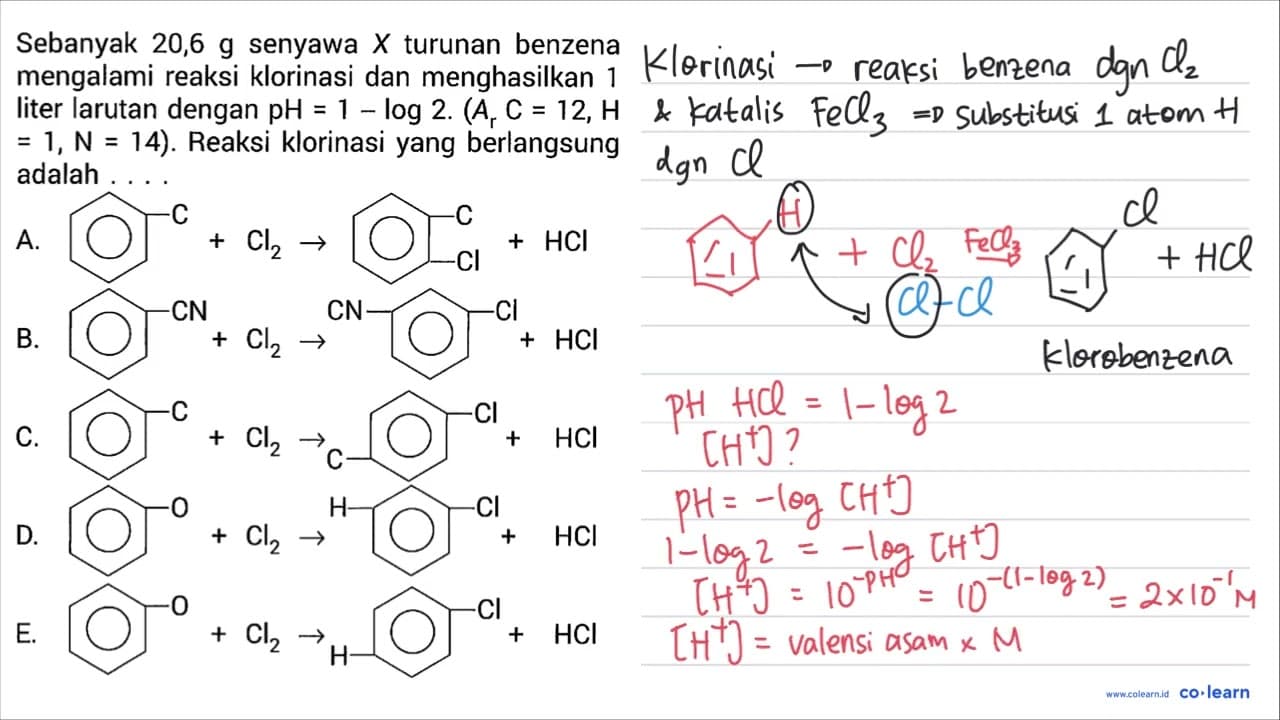 Sebanyak 20,6 g senyawa X turunan benzena
mengalami reaksi klorinasi dan menghasilkan 1
liter larutan dengan pH = 1 – log 2. (Aᵣ C = 12, H
= 1, N = 14). Reaksi klorinasi yang berlangsung
adalah . . . .
A. –C + Cl₂ → –C –Cl + HCl
B. –CN + Cl₂ → CN– –Cl + HCl
C. –C + Cl₂ → C– –Cl + HCl
D. –O + Cl₂ → H– –Cl + HCl
E. –O + Cl₂ → H– –Cl + HCl
Klorinasi → reaksi benzena dgn Cl₂
& katalis FeCl₃ ⇒ substitusi 1 atom H
dgn Cl
H + Cl₂ FeCl₃ → Cl + HCl
Cl–Cl
klorobenzena
pH HCl = 1 – log 2
[H⁺]?
pH = –log [H⁺]
1 – log 2 = –log [H⁺]
[H⁺] = 10^-pH = 10^-(1-log 2) = 2×10⁻¹ M
[H⁺] = valensi asam × M
www.colearn.id co·learn